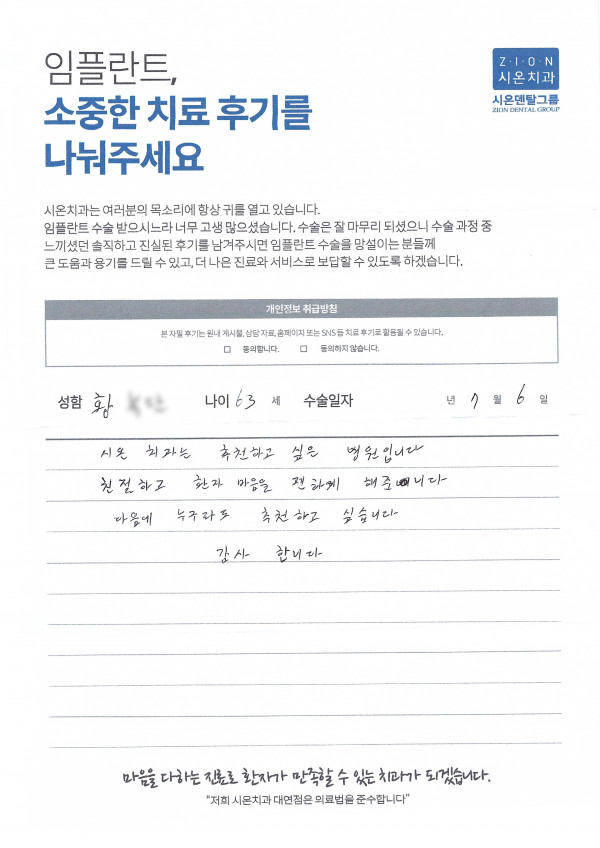 임플란트,
소중한 치료 후기를
나눠주세요
Z·I·O·N
시온치과
시온덴탈그룹
ZION DENTAL GROUP
시온치과는 여러분의 목소리에 항상 귀를 열고 있습니다.
임플란트 수술 받으시느라 너무 고생 많으셨습니다. 수술은 잘 마무리 되셨으니 수술 과정 중
느끼셨던 솔직하고 진실된 후기를 남겨주시면 임플란트 수술을 망설이는 분들께
큰 도움과 용기를 드릴 수 있고, 더 나은 진료와 서비스로 보답할 수 있도록 하겠습니다.
개인정보 취급방침
본 자필 후기는 원내 게시물, 상담 자료, 홈페이지 또는 SNS 등 치료 후기로 활용될 수 있습니다.
□ 동의합니다. □ 동의하지 않습니다.
성함 황 나이 63 세 수술일자 년 7 월 6 일
시온 치과는 추천하고 싶은 병원입니다
친절하고 환자 마음을 편하게 해준니다
다음에 누구라도 추천하고 싶습니다
감사 합니다
마음을 다하는 진료로 환자가 만족할 수 있는 치과가 되겠습니다.
"저희 시온치과 대연점은 의료법을 준수합니다"